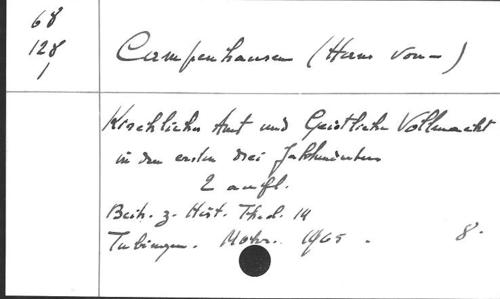 68
128
1
Campenhausen (Hans von –)
Kirchliches Amt und Geistliche Vollmacht
in den ersten drei Jahrhunderten
2 aufl.
Beitr. z. Hist. Theol. 14
Tubingen. Mohr. 1965. 8.